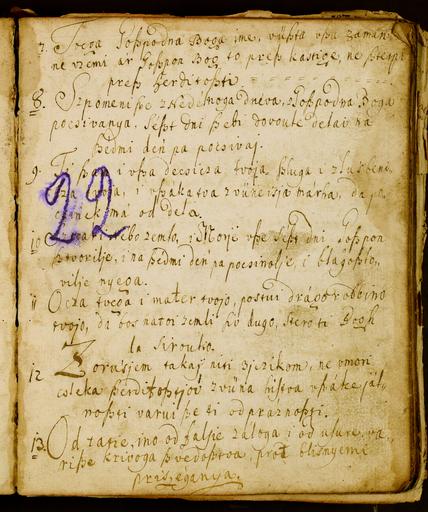 7. Tvega Goſpodna Boga ime, vüſta vſa zaman
ne vzemi ar Goſpon Bog to prez kaſtige, ne ſterpi
prez ſerditoſti
8. Szpomeniſe z Nedelnoga dneva, z Goſpodna Boga
pocsivanya, ſéſt dni ſzebi dovoule delai na
ſzedmi den pa pocsivaj.
9. Ti ſzam i vſa decsicza tvoja, ſzluga i zluſbeni
cza tvoja, i vſzaka tva marha, da po
má od dela.
22
10 nebo zemlo, i Morje vſe ſéſt dni Goſpon
ſztvorilje, i na ſzedmi den ja pocsinolje, i blagoſzlo
vilje nyega.
11 Ocza tvega i mater tvojo, poſtüi drágo rodbino
tvojo, da boſ na toi zemli ſiv dugo, ſtero ti Bogh
da ſiroko.
12 Z orusjem takaj niti z jezikom, ne vmori
csloveka ſzerditoſztjov zvüna hiſtva vſzake jál
noſzti varui ſze ti od praznoſzti.
13. Od tatie, ino od falſje zaloga i od uſure, va
riſze krivoga ſzvedoſztva, prot bliſnyemi
priszeganya.